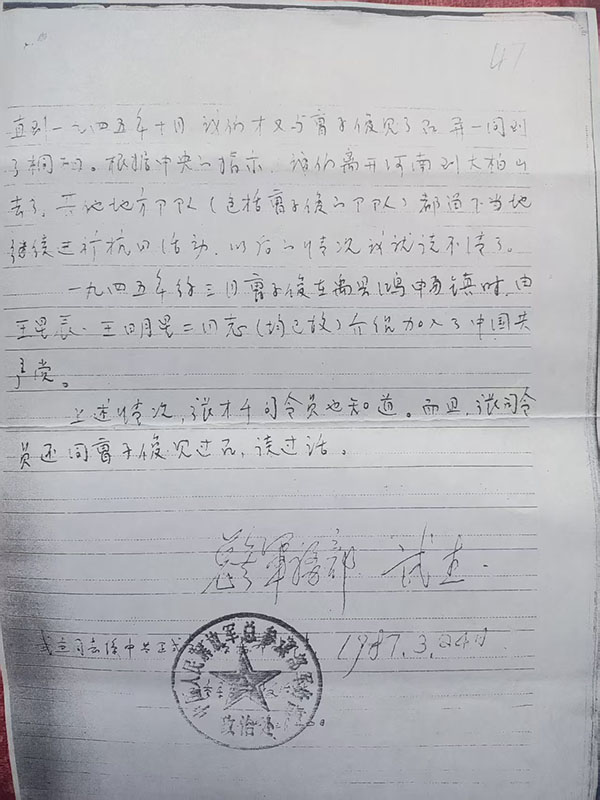 47
直到一九四五年十月 我们才又与离子俊见了面 并一同到
了桐柏。根据中央的指示，我们离开河南到大柏山
去了，其他地方部队（包括离子俊的部队）都留下当地
继续进行抗日活动，以后的情况我就说不清了。
一九四五年 三月离子俊在禹县鸿畅镇时，由
王星辰、王明星二同志（均已故）介绍加入了中国共
产党。
上述情况，张才千司令员也知道。而且，张司令
员还同离子俊见过面，谈过话。
总参军务部
1987.3.24日
中国人民解放军总参谋部军务部
政治处